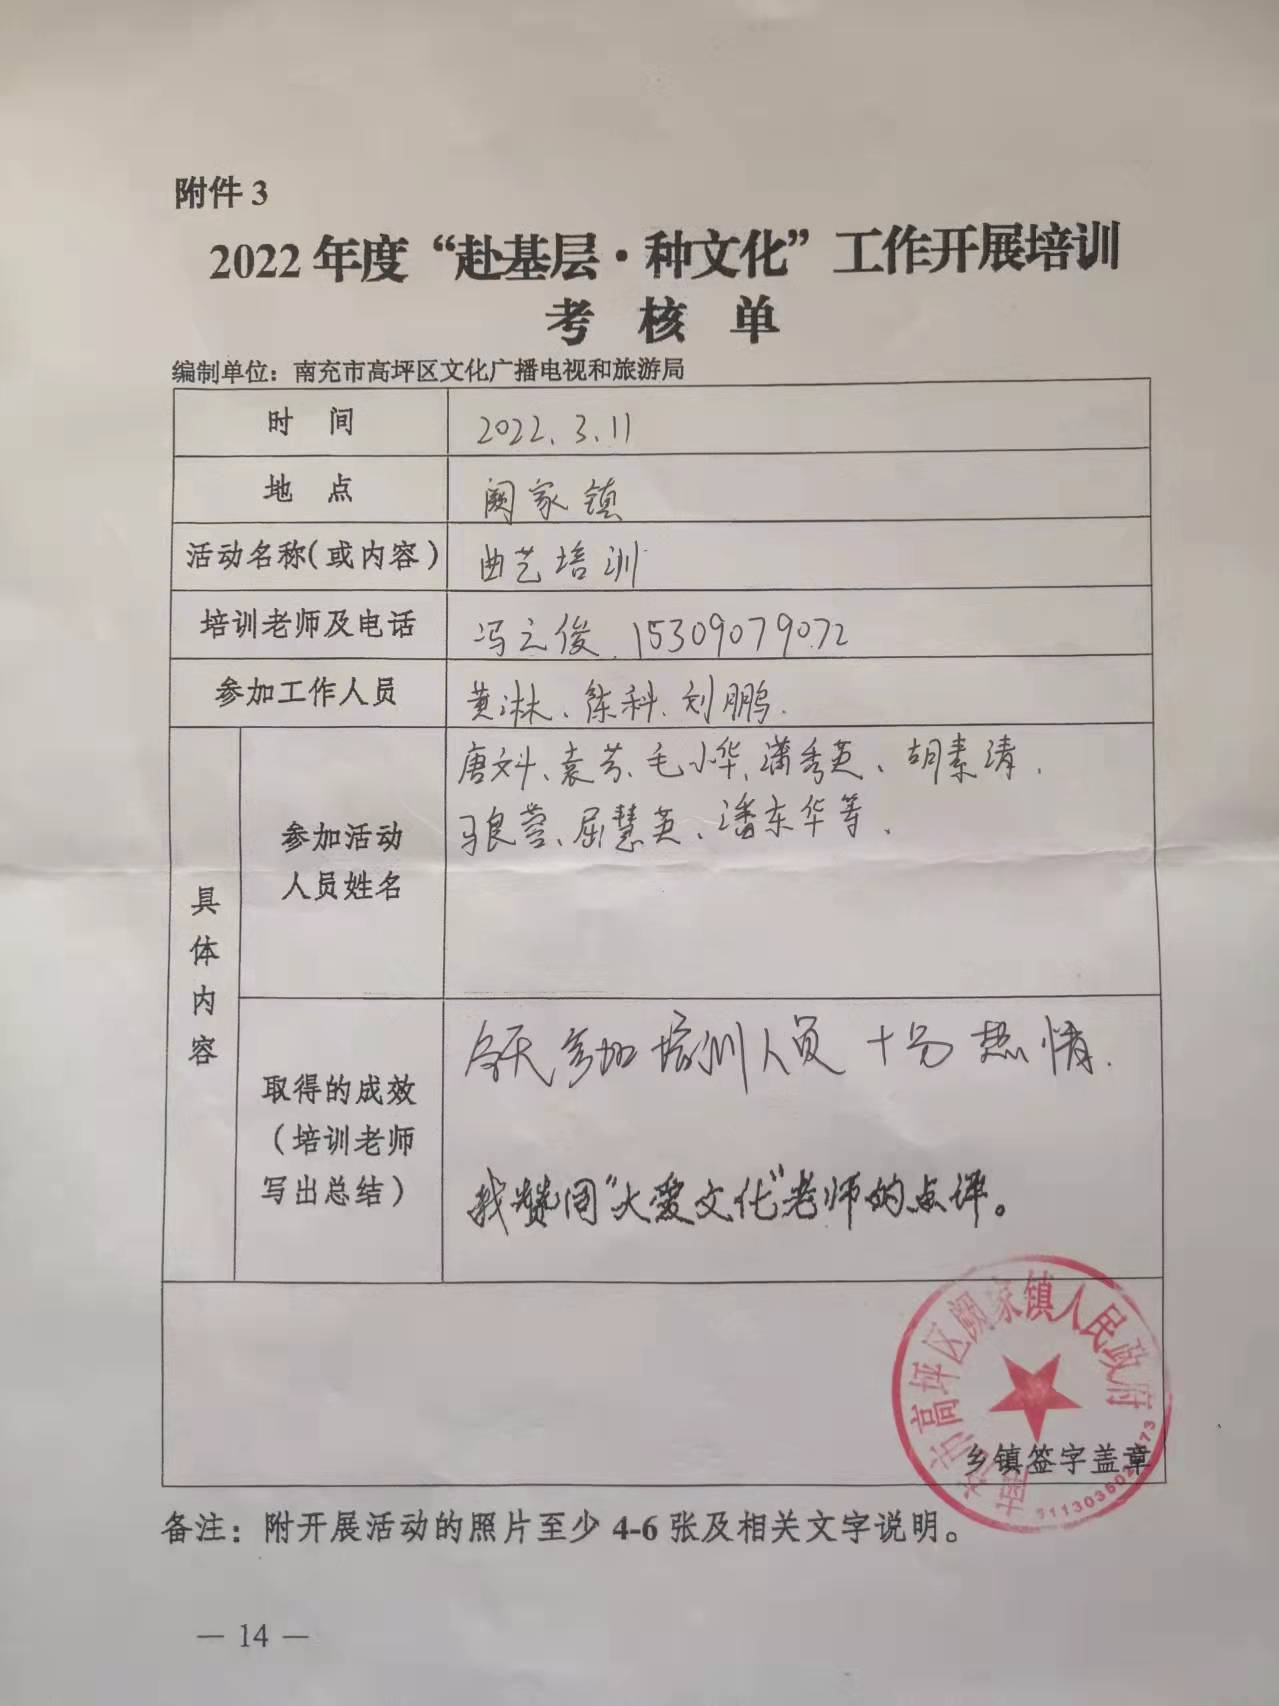 附件 3
2022 年度“赴基层·种文化”工作开展培训
考 核 单
编制单位：南充市高坪区文化广播电视和旅游局
时 间
2022.3.11
地 点
阙家镇
活动名称（或内容）
曲艺培训
培训老师及电话
冯之俊 15309079072
参加工作人员
黄淋、陈科、刘鹏.
具体内容
参加活动
人员姓名
唐文斗、袁芳、毛小华、蒲秀英、胡素清、
马良蓉、屈慧英、潘东华等、
取得的成效
（培训老师
写出总结）
今天参加培训人员十分热情.
我赞同“大爱文化”老师的点评。
南充市高坪区阙家镇人民政府
乡镇签字盖章
备注：附开展活动的照片至少 4-6 张及相关文字说明。
— 14 —